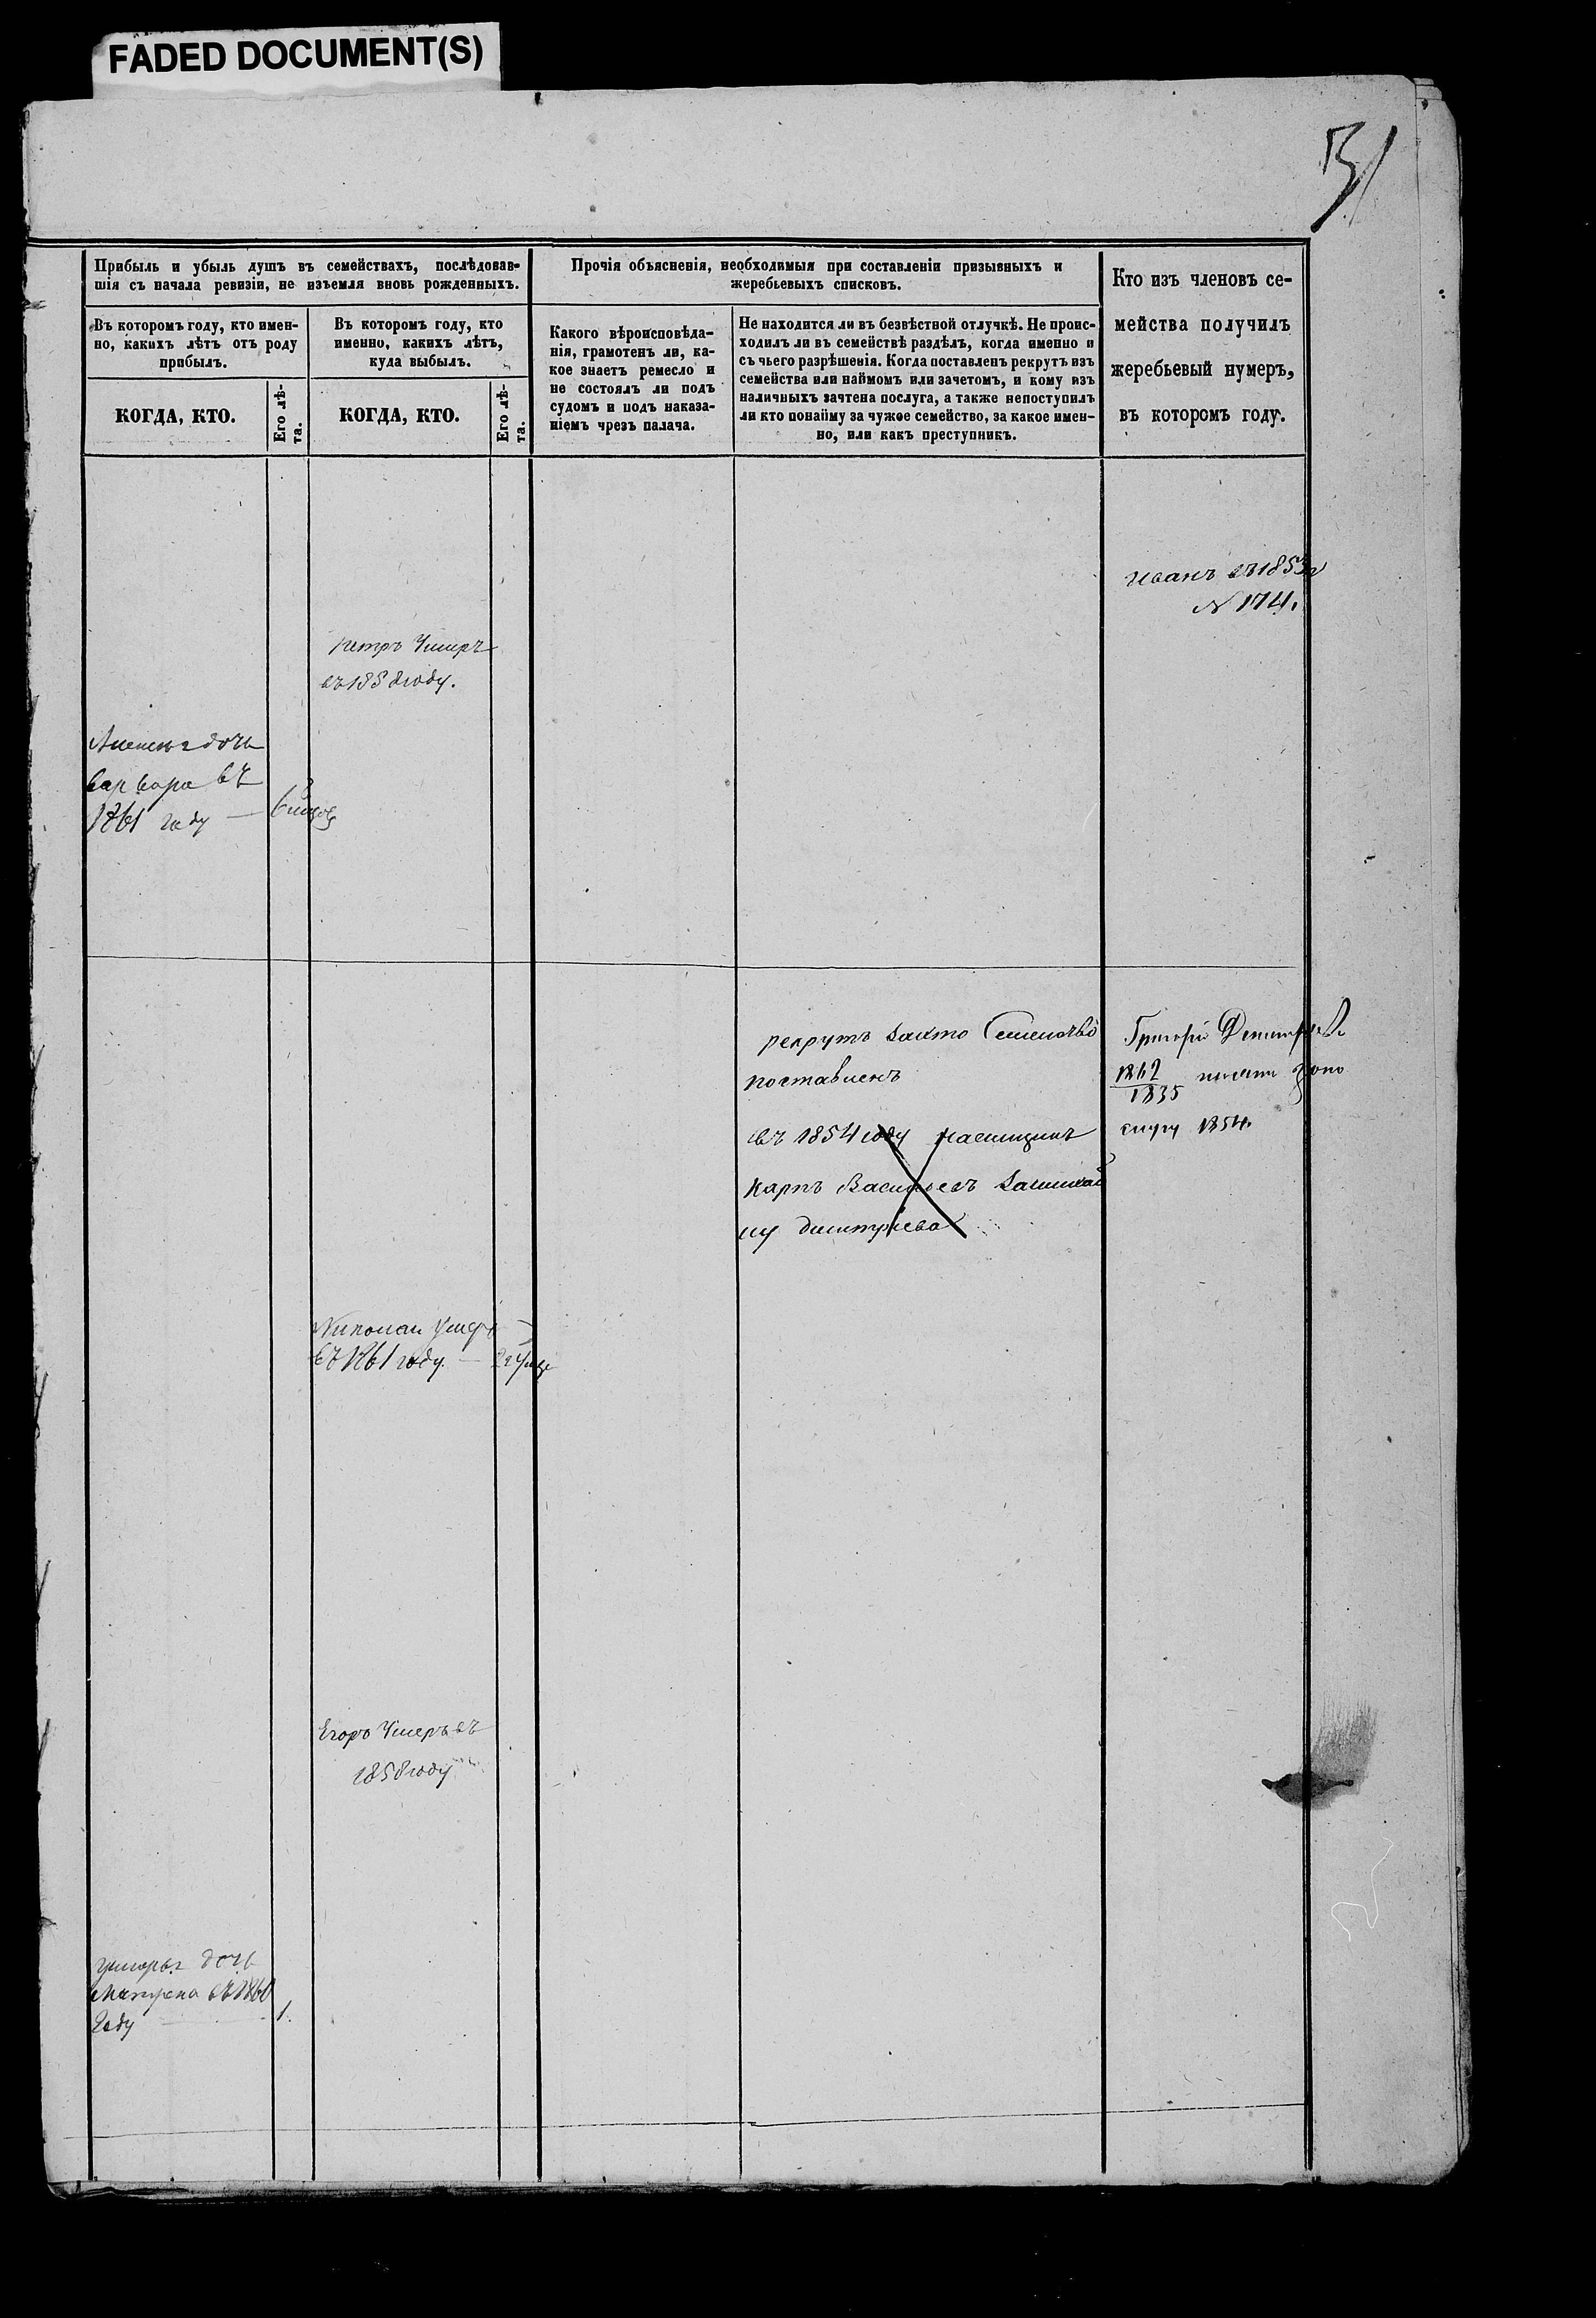 FADED DOCUMENT(S)
51
Прибыль и убыль душъ въ семействахъ, послѣдовав-
шія съ начала ревизіи, не изъемля вновь рожденныхъ.
Въ которомъ году, кто имен-
но, какихъ лѣтъ отъ роду
прибылъ.
КОГДА, КТО.
Его лѣ-
та.
Въ которомъ году, кто
именно, какихъ лѣтъ,
куда выбылъ.
КОГДА, КТО.
Его лѣ-
та.
Прочія объясненія, необходимыя при составленіи призывныхъ и
жеребьевыхъ списковъ.
Какого вѣроисповѣда-
нія, грамотенъ ли, ка-
кое знаетъ ремесло и
не состоялъ ли подъ
судомъ и подъ наказа-
ніемъ чрезъ палача.
Не находится ли въ безвѣстной отлучкѣ. Не проис-
ходилъ ли въ семействѣ раздѣлъ, когда именно и
съ чьего разрѣшенія. Когда поставленъ рекрутъ изъ
семейства или наймомъ или зачетомъ, и кому изъ
наличныхъ зачтена послуга, а также непоступилъ
ли кто понайму за чужое семейство, за какое имен-
но, или какъ преступникъ.
Кто изъ членовъ се-
мейства получилъ
жеребьевый нумеръ,
въ которомъ году.
Иванъ въ 1853 г
N 174.
петръ Умеръ
въ 1858 году.
дочь
варвара въ
1861 году — 6
рекрутъ Семейство
поставленъ
въ 1854 году
карпъ Васильевъ
дмитріева
Григорій
1862
1835
1854.
Николаи умеръ
въ 1861 году —
Егоръ Умеръ въ
1858 году
дочь
Матрена въ 1860
Году 1.